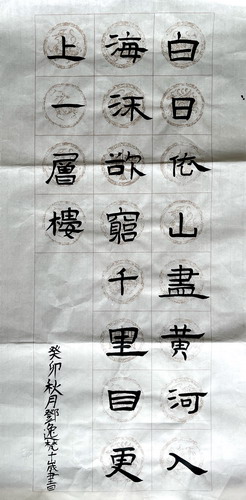 白日依山盡黄河入
海流欲窮千里目更
上一層樓
癸卯秋月鄧逸梵十歲書